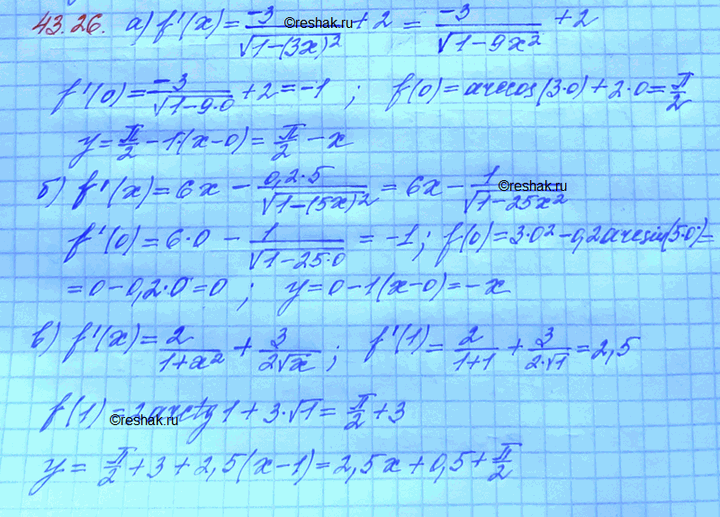 43.26. а) f'(x) = -3/√(1-(3x)²) + 2 = -3/√(1-9x²) + 2
©reshak.ru
f'(0) = -3/√(1-9·0) + 2 = -1 ; f(0) = arccos(3·0) + 2·0 = π/2
y = π/2 - 1·(x-0) = π/2 - x
б) f'(x) = 6x - 0,2·5/√(1-(5x)²) = 6x - 1/√(1-25x²)
©reshak.ru
f'(0) = 6·0 - 1/√(1-25·0) = -1 ; f(0) = 3·0² - 0,2arcsin(5·0) =
= 0 - 0,2·0 = 0 ; y = 0 - 1(x-0) = -x
в) f'(x) = 2/(1+x²) + 3/(2√x) ; f'(1) = 2/(1+1) + 3/(2·√1) = 2,5
f(1) = 2arctg1 + 3·√1 = π/2 + 3
©reshak.ru
y = π/2 + 3 + 2,5(x-1) = 2,5x + 0,5 + π/2